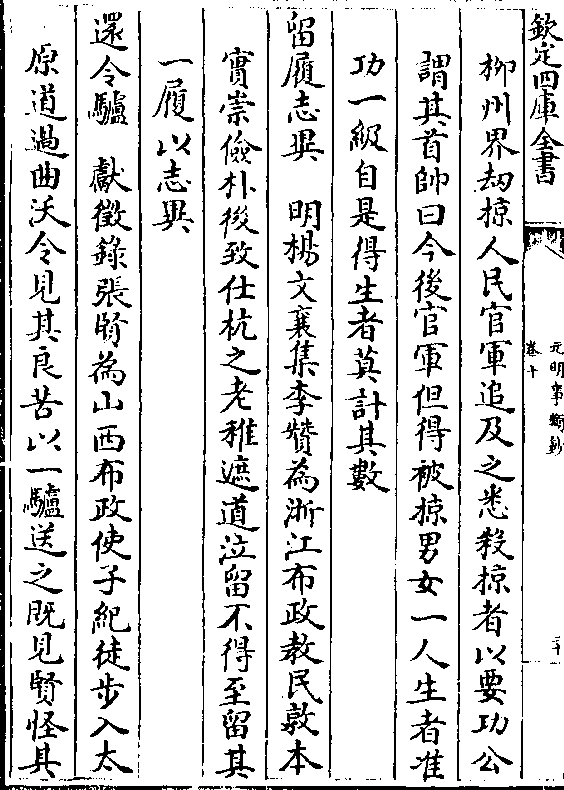 欽定四庫全書
元明事類鈔
卷十
二十
柳州界刼掠人民官軍追及之悉殺掠者以要功公
謂其首帥曰今後官軍但得被掠男女一人生者准
功一級自是得生者莫計其數
留履志異　明楊文襄集李贊為浙江布政教民敦本
實崇儉朴後致仕杭之老稚遮道泣留不得至留其
一履以志異
還令驢　獻徵錄張賢為山西布政使子紀徒步入太
原道過曲沃令見其良苦以一驢送之既見賢怪其